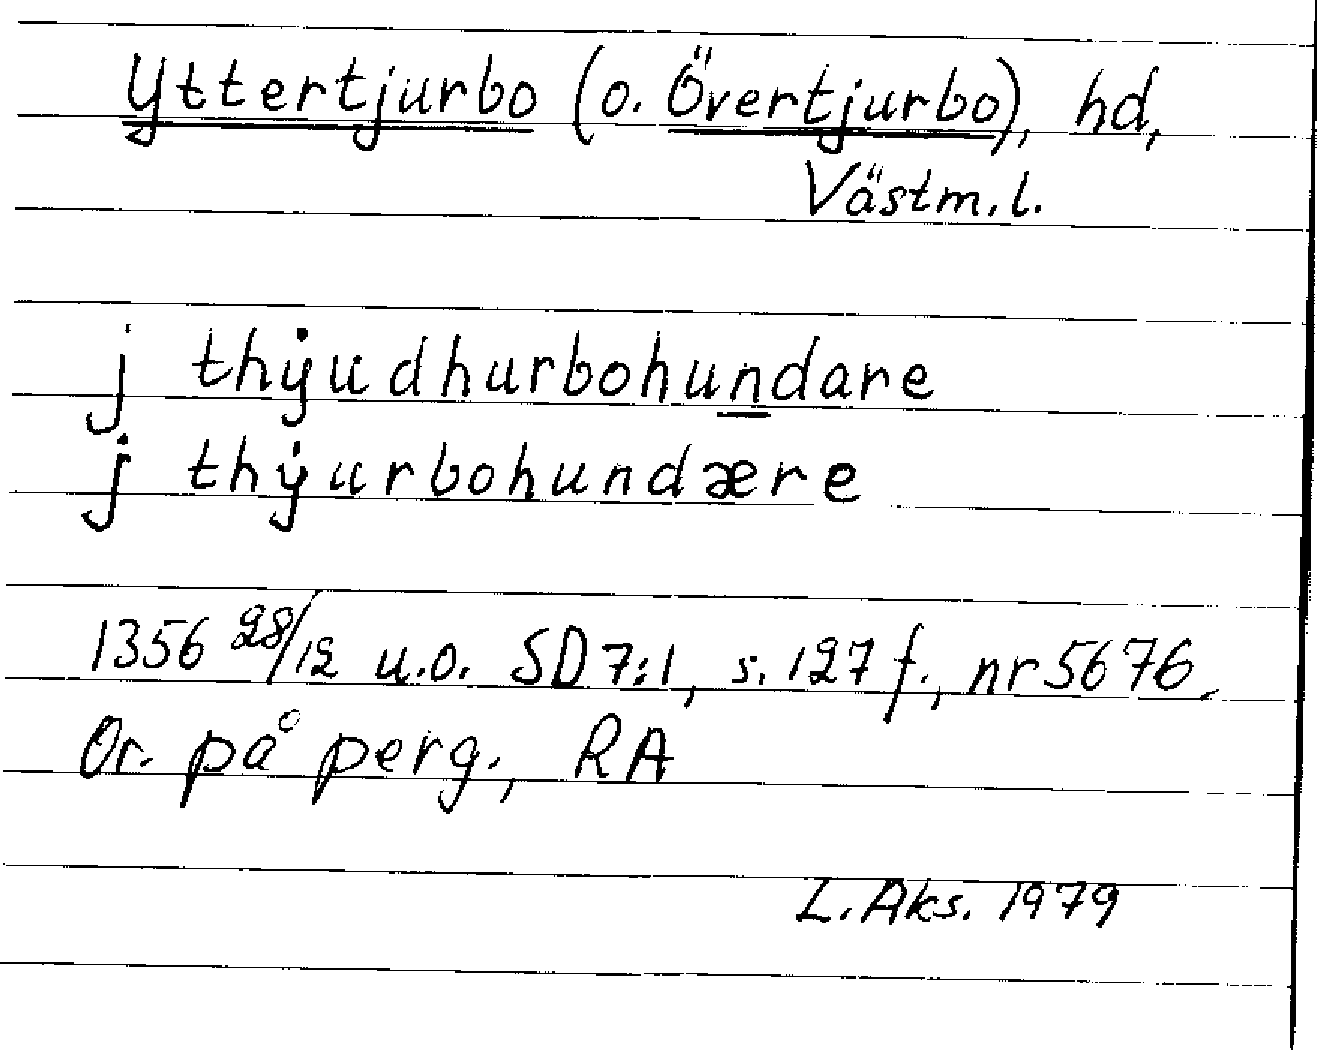 Yttertjurbo (o. Övertjurbo), hd,
Västm. l.
j thẏudhurbohundare
j thẏurbohundære
1356 28/12 u.o. SD 7:1, s. 127 f., nr 5676.
Or. på perg., RA
L. Aks. 1979